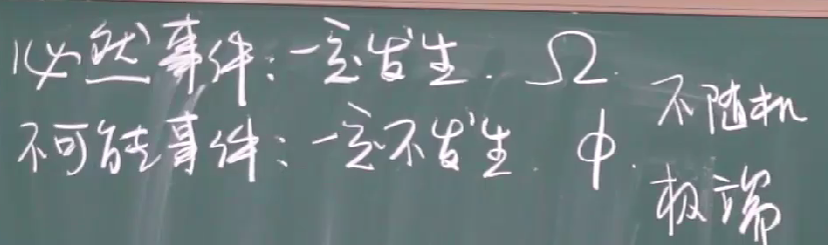 必然事件:一定发生. Ω.
不可能事件:一定不发生. φ.
不随机
极端